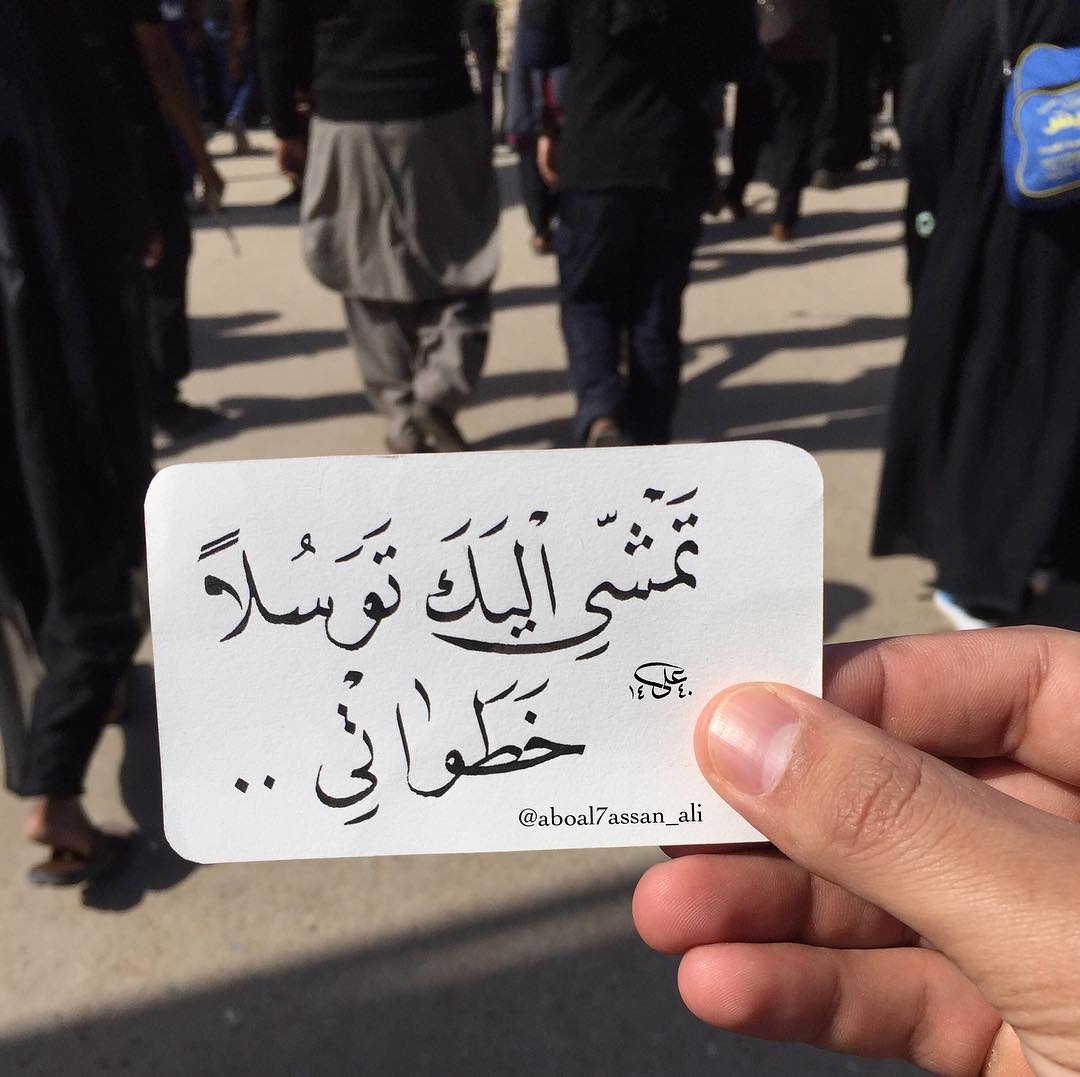 تَمْشّي اْليَكَ تَوَسُلاً
خَطَواتْي ..
علي ١٤٤٠
@aboal7assan_ali